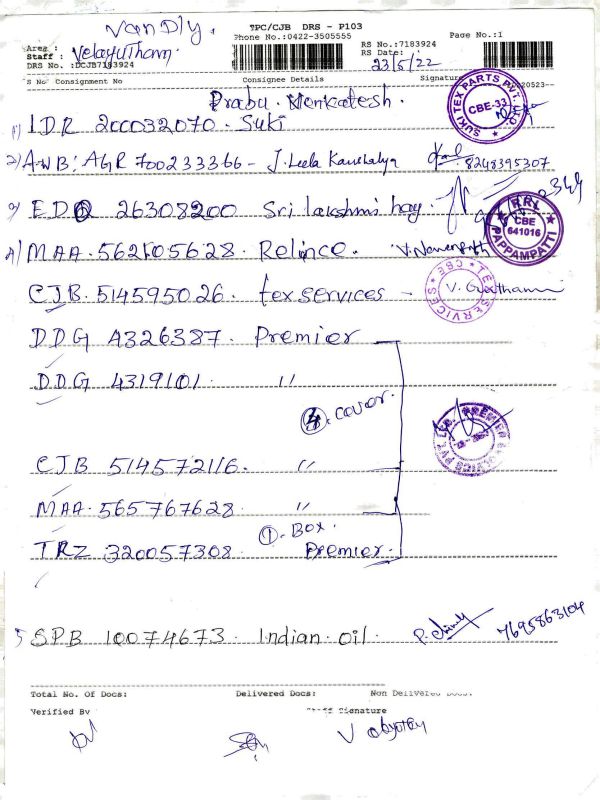 Van Dly.
TPC/CJB DRS - P103
Phone No.:0422-3505555 Page No.:1
Area :
Staff : Velayutham.
DRS No. :DCJB7183924
RS No.:7183924
RS Date:
23/5/22
S No Consignment No Consignee Details Signature
Prabu. Venkatesh.
SUKI TEX PARTS PVT. LTD. CBE-33
1) IDR 200032070. Suki
2) AWB: AGR 700233366 - J. Leela Kaushalya 8248395307
3) EDQ 26308200 Sri lakshmi hay.
RRL CBE 641016 PAPPAMPATTI
4) MAA. 562105628. Relince.
CJB. 514595026. tex services - V. Gowthamm
TEX SERVICES CBE
DDG A326387. Premier
DDG 4319101. "
4. cover.
PREMIER
CJB 514572116. "
MAA. 565767628. "
1. Box.
TRZ 320057308. Premier.
5 SPB 10074673. Indian. oil. 7695863104
Total No. Of Docs: Delivered Docs: Non Delivered Docs:
Verified By Staff Signature